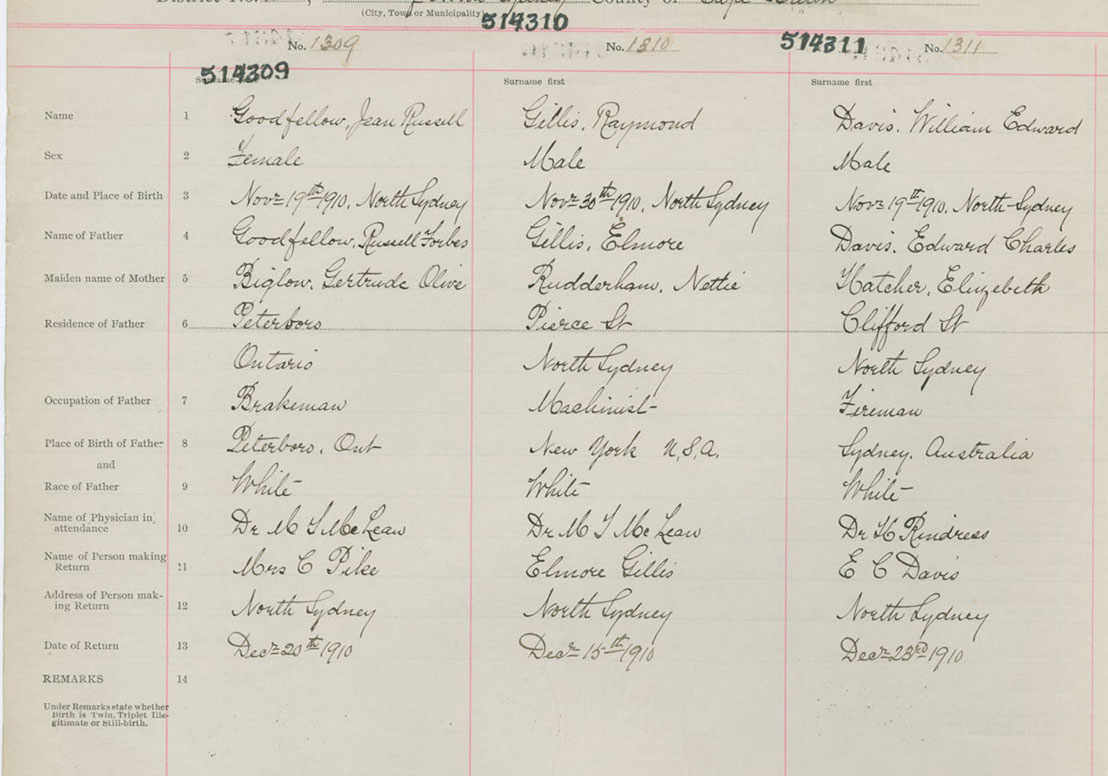 District No. County of Cape Breton
(City, Town or Municipality)
514310
No. 1309
No. 1310
514311
No. 1311
514309
Surname first
Surname first
Name 1 Goodfellow, Jean Russell Gillis, Raymond Davis, William Edward
Sex 2 Female Male Male
Date and Place of Birth 3 Novr 19th 1910, North Sydney Novr 30th 1910, North Sydney Novr 19th 1910, North Sydney
Name of Father 4 Goodfellow, Russell Forbes Gillis, Elmore Davis, Edward Charles
Maiden name of Mother 5 Biglow, Gertrude Olive Rudderham, Nettie Hatcher, Elizebeth
Residence of Father 6 Peterboro Pierce St Clifford St
Ontario North Sydney North Sydney
Occupation of Father 7 Brakeman Machinist Fireman
Place of Birth of Father 8 Peterboro, Ont New York U.S.A. Sydney, Australia
and
Race of Father 9 White White White
Name of Physician in
attendance 10 Dr M McLean Dr M McLean Dr H Rindress
Name of Person making
Return 11 Mrs C Pike Elmore Gillis E C Davis
Address of Person mak-
ing Return 12 North Sydney North Sydney North Sydney
Date of Return 13 Decr 20th 1910 Decr 15th 1910 Decr 23rd 1910
REMARKS 14
Under Remarks state whether
Birth is Twin, Triplet Ille-
gitimate or Still-birth.